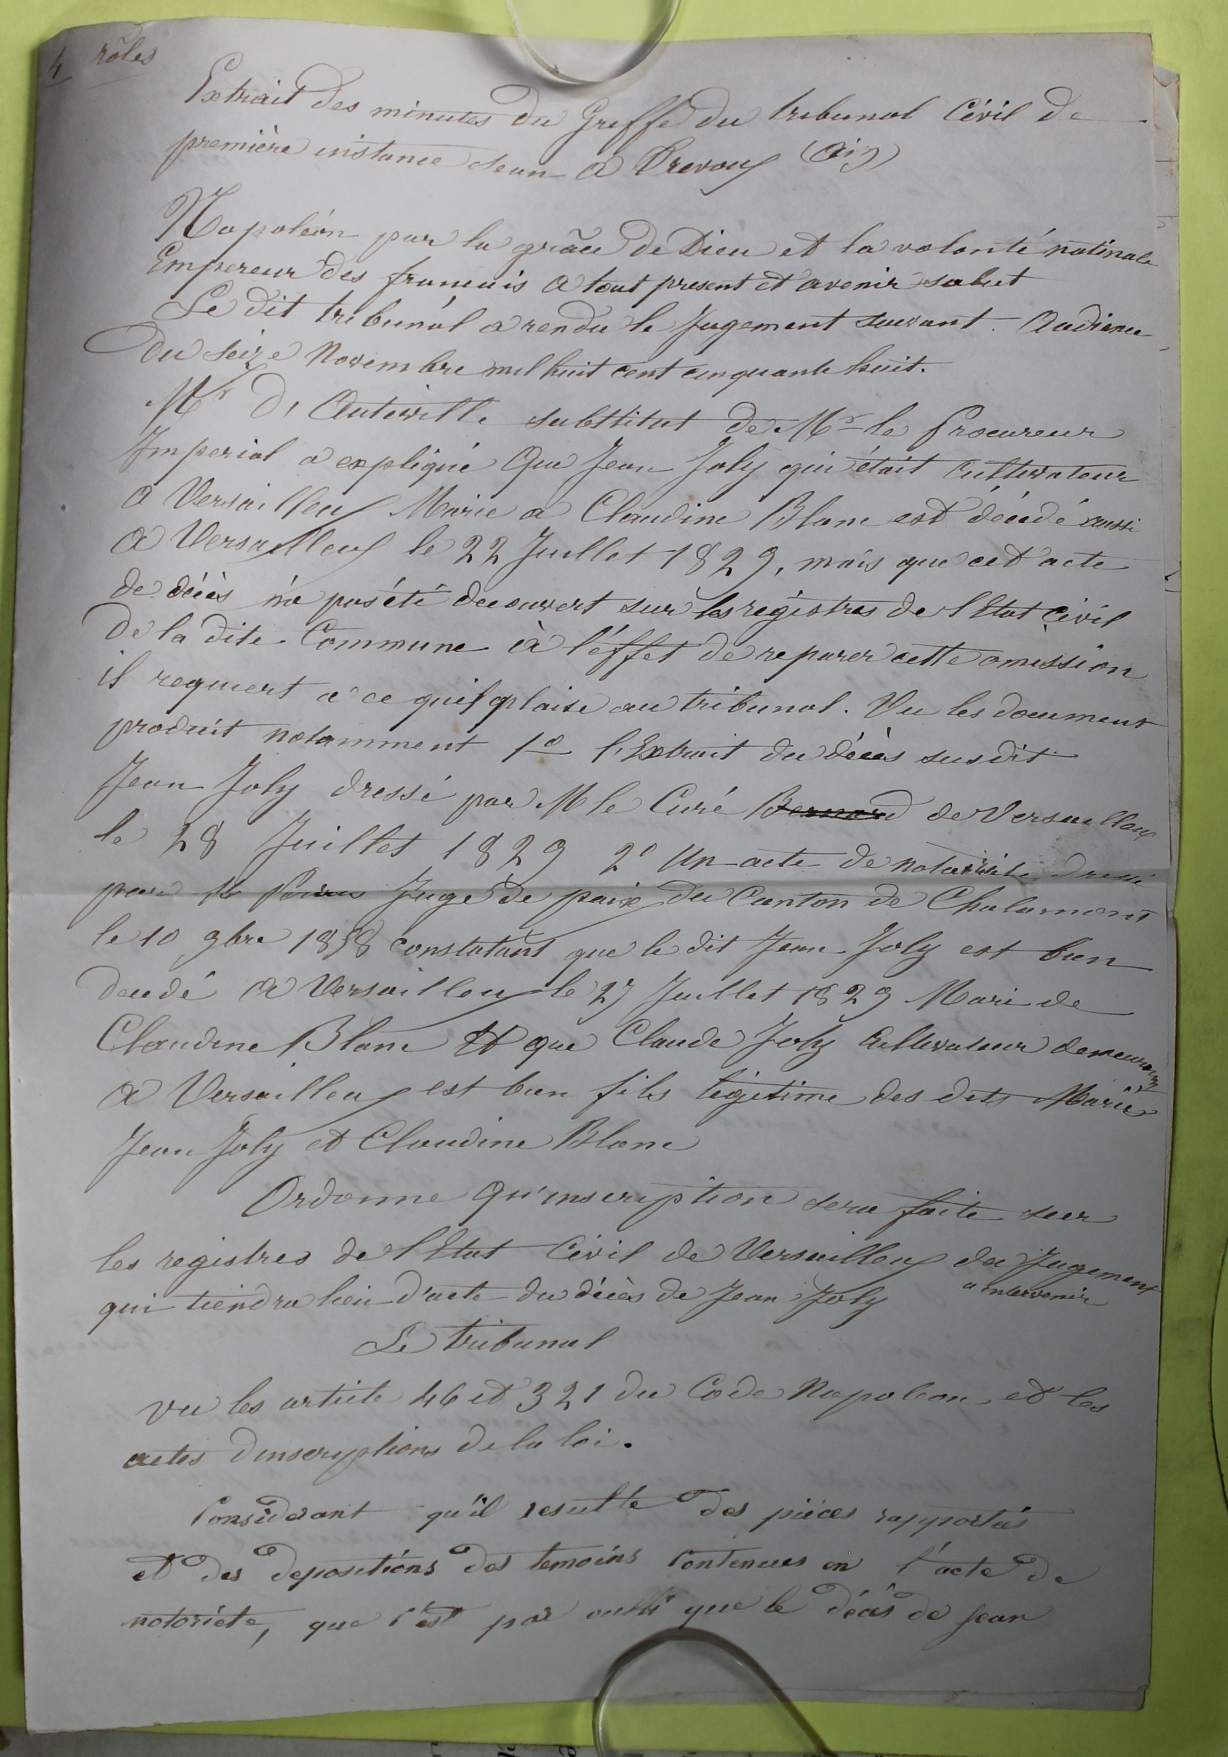 4 rôles
Extrait des minutes du Greffe du tribunal Civil de
première instance seant à Trevoux (Ain)
Napoléon par la grâce de Dieu et la volonté natinale
Empereur des français a tout present et avenir salut
Le dit tribunal a rendu le Jugement suivant. Audience
du seize Novembre mil huit cent cinquante huit.
Mr D' Auteville substitut de Mr le Procureur
Imperial a expliqué Que Jean Joly qui était Cultivateur
a Versailleux Marie a Claudine Blanc est décédé aussi
a Versailleux le 22 Juillet 1829, mais que cet acte
de décès n'a pas été decouvert sur les registres de l'Etat Civil
de la dite Commune à l'éffet de reparer cette omission
il requiert a ce quil plaise au tribunal. Vu les document
produit notamment 1o l'Extrait du décès sus dit
Jean Joly dressé par M le Curé Bernard de Versailleux
le 28 Juillet 1829 2o Un acte de notoriété dressé
par le Juge de paix du Canton de Chalamont
le 10 9bre 1858 constatant que le dit Jean Joly est bien
décédé a Versailleux le 27 Juillet 1829 Mari de
Claudine Blanc Et que Claude Joly Cultivateur demeurant
a Versailleux est bien fils légitime des dits Mariés
Jean Joly et Claudine Blanc
Ordonne Qu'inscription sera faite sur
les registres de l'Etat Civil de Versailleux du Jugement
a intervenir
qui tiendra lieu d'acte du décès de Jean Joly
Le tribunal
vu les article 46 et 321 du Code Napoleon, et les
actes d'inscriptions de la loi.
Considerant qu'il resulte des pièces rapportés
et des depositions des temoins Contenues en l'acte de
notoriete, que c'est par oubli que le décès de Jean